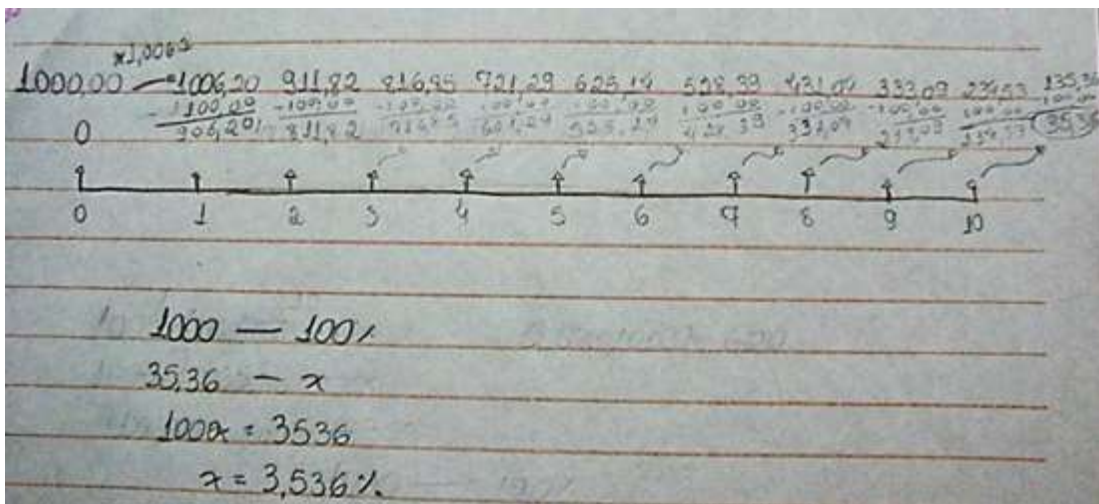 ×1,0062
1000,00 1006,20 911,82 816,85 721,29 625,14 528,39 431,04 333,09 234,53 135,36
- 100,00 - 100,00 - 100,00 100,00 - 100,00 100,00 - 100,00 - 100,00 100,00 100,00
0 906,20 811,82 716,85 621,29 525,14 428,39 331,04 233,09 134,53 35,36
0 1 2 3 4 5 6 7 8 9 10
1000 — 100%
35,36 — x
1000x = 3536
x = 3,536%.